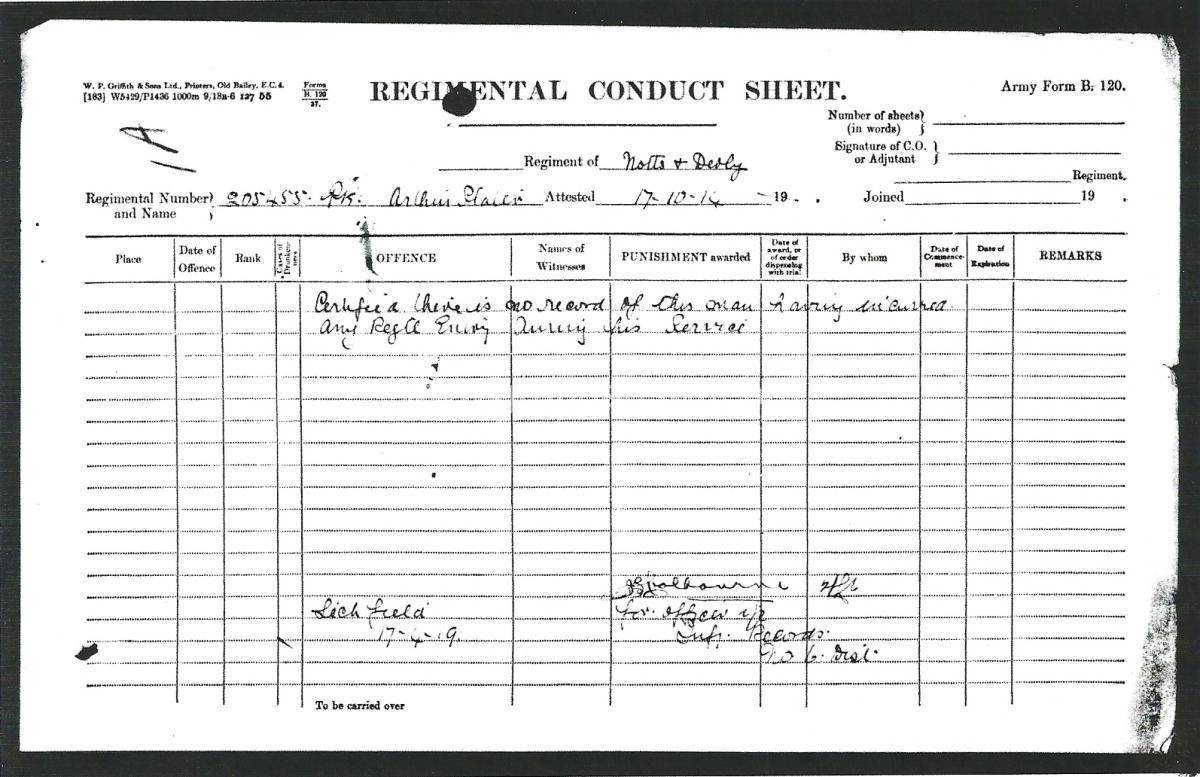 W. P. Griffith & Sons Ltd., Printers, Old Bailey, E.C.4.
[183] W5429/P1436 1000m 9/18a-6 137 55
Forms
B. 120
37.
REGIMENTAL CONDUCT SHEET.
Army Form B. 120.
Number of sheets
(in words)
Signature of C.O.
or Adjutant
Regiment of Notts & Derby
Regiment.
Regimental Number and Name 205455. Arthur Attested 17-10-14 19 . Joined 19 .
Place
Date of Offence
Rank
Cases of Drunkenness
OFFENCE
Names of Witnesses
PUNISHMENT awarded
Date of award, or of order dispensing with trial
By whom
Date of Commencement
Date of Expiration
REMARKS
Certified there is no record of this man having incurred
any Regtl Entry during his Service
Lichfield
17-4-19.
for officer i/c
Inf. Records.
No 6. Dist.
To be carried over